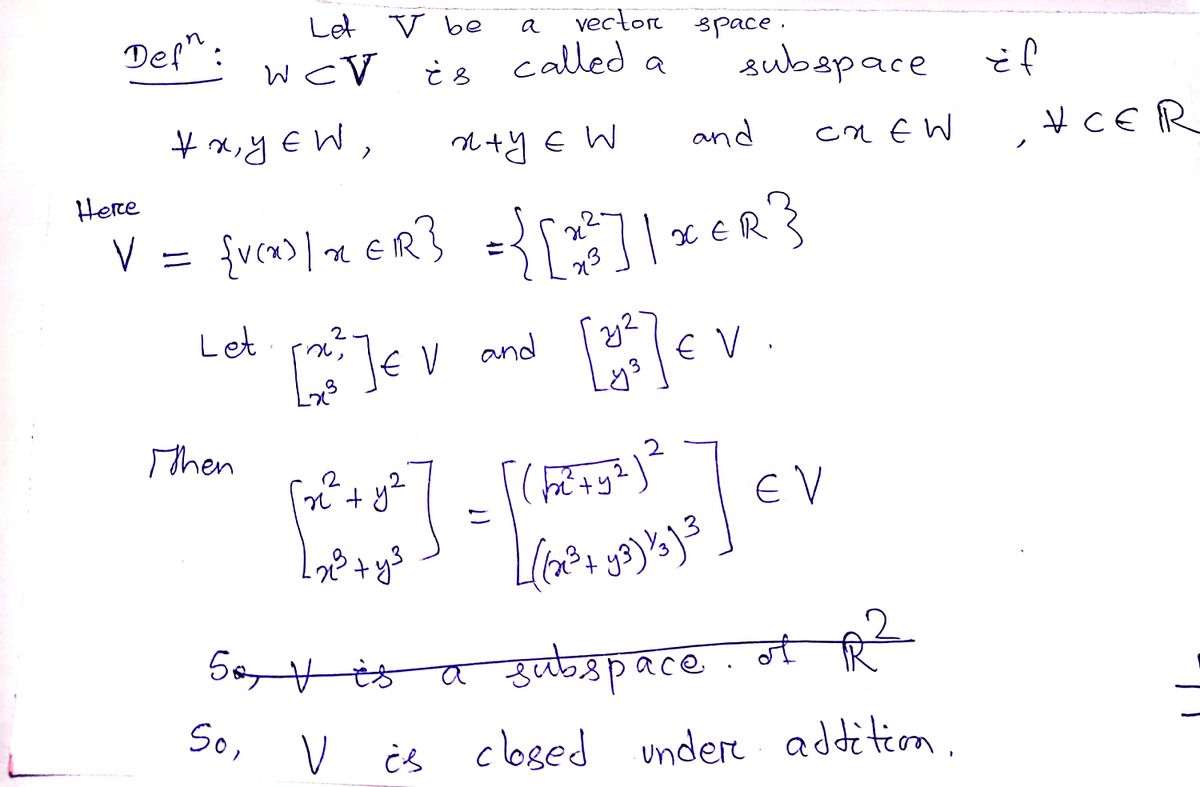 Let V be a vector space.
Defⁿ: W ⊂ V is called a subspace if
∀ x, y ∈ W, x+y ∈ W and cx ∈ W, ∀ c ∈ ℝ
Here
V = {v(x) | x ∈ ℝ} = {[x² x³] | x ∈ ℝ}
Let [x², x³] ∈ V and [y² y³] ∈ V.
Then [x² + y² x³ + y³] = [(√x²+y²)² ((x³+y³)^⅓)³] ∈ V
So, V is a subspace. of ℝ²
So, V is closed under addition.